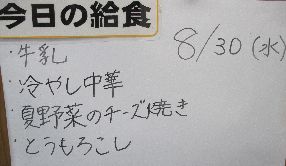 今日の給食
8/30(水)
・牛乳
・冷やし中華
・夏野菜のチーズ焼き
・とうもろこし